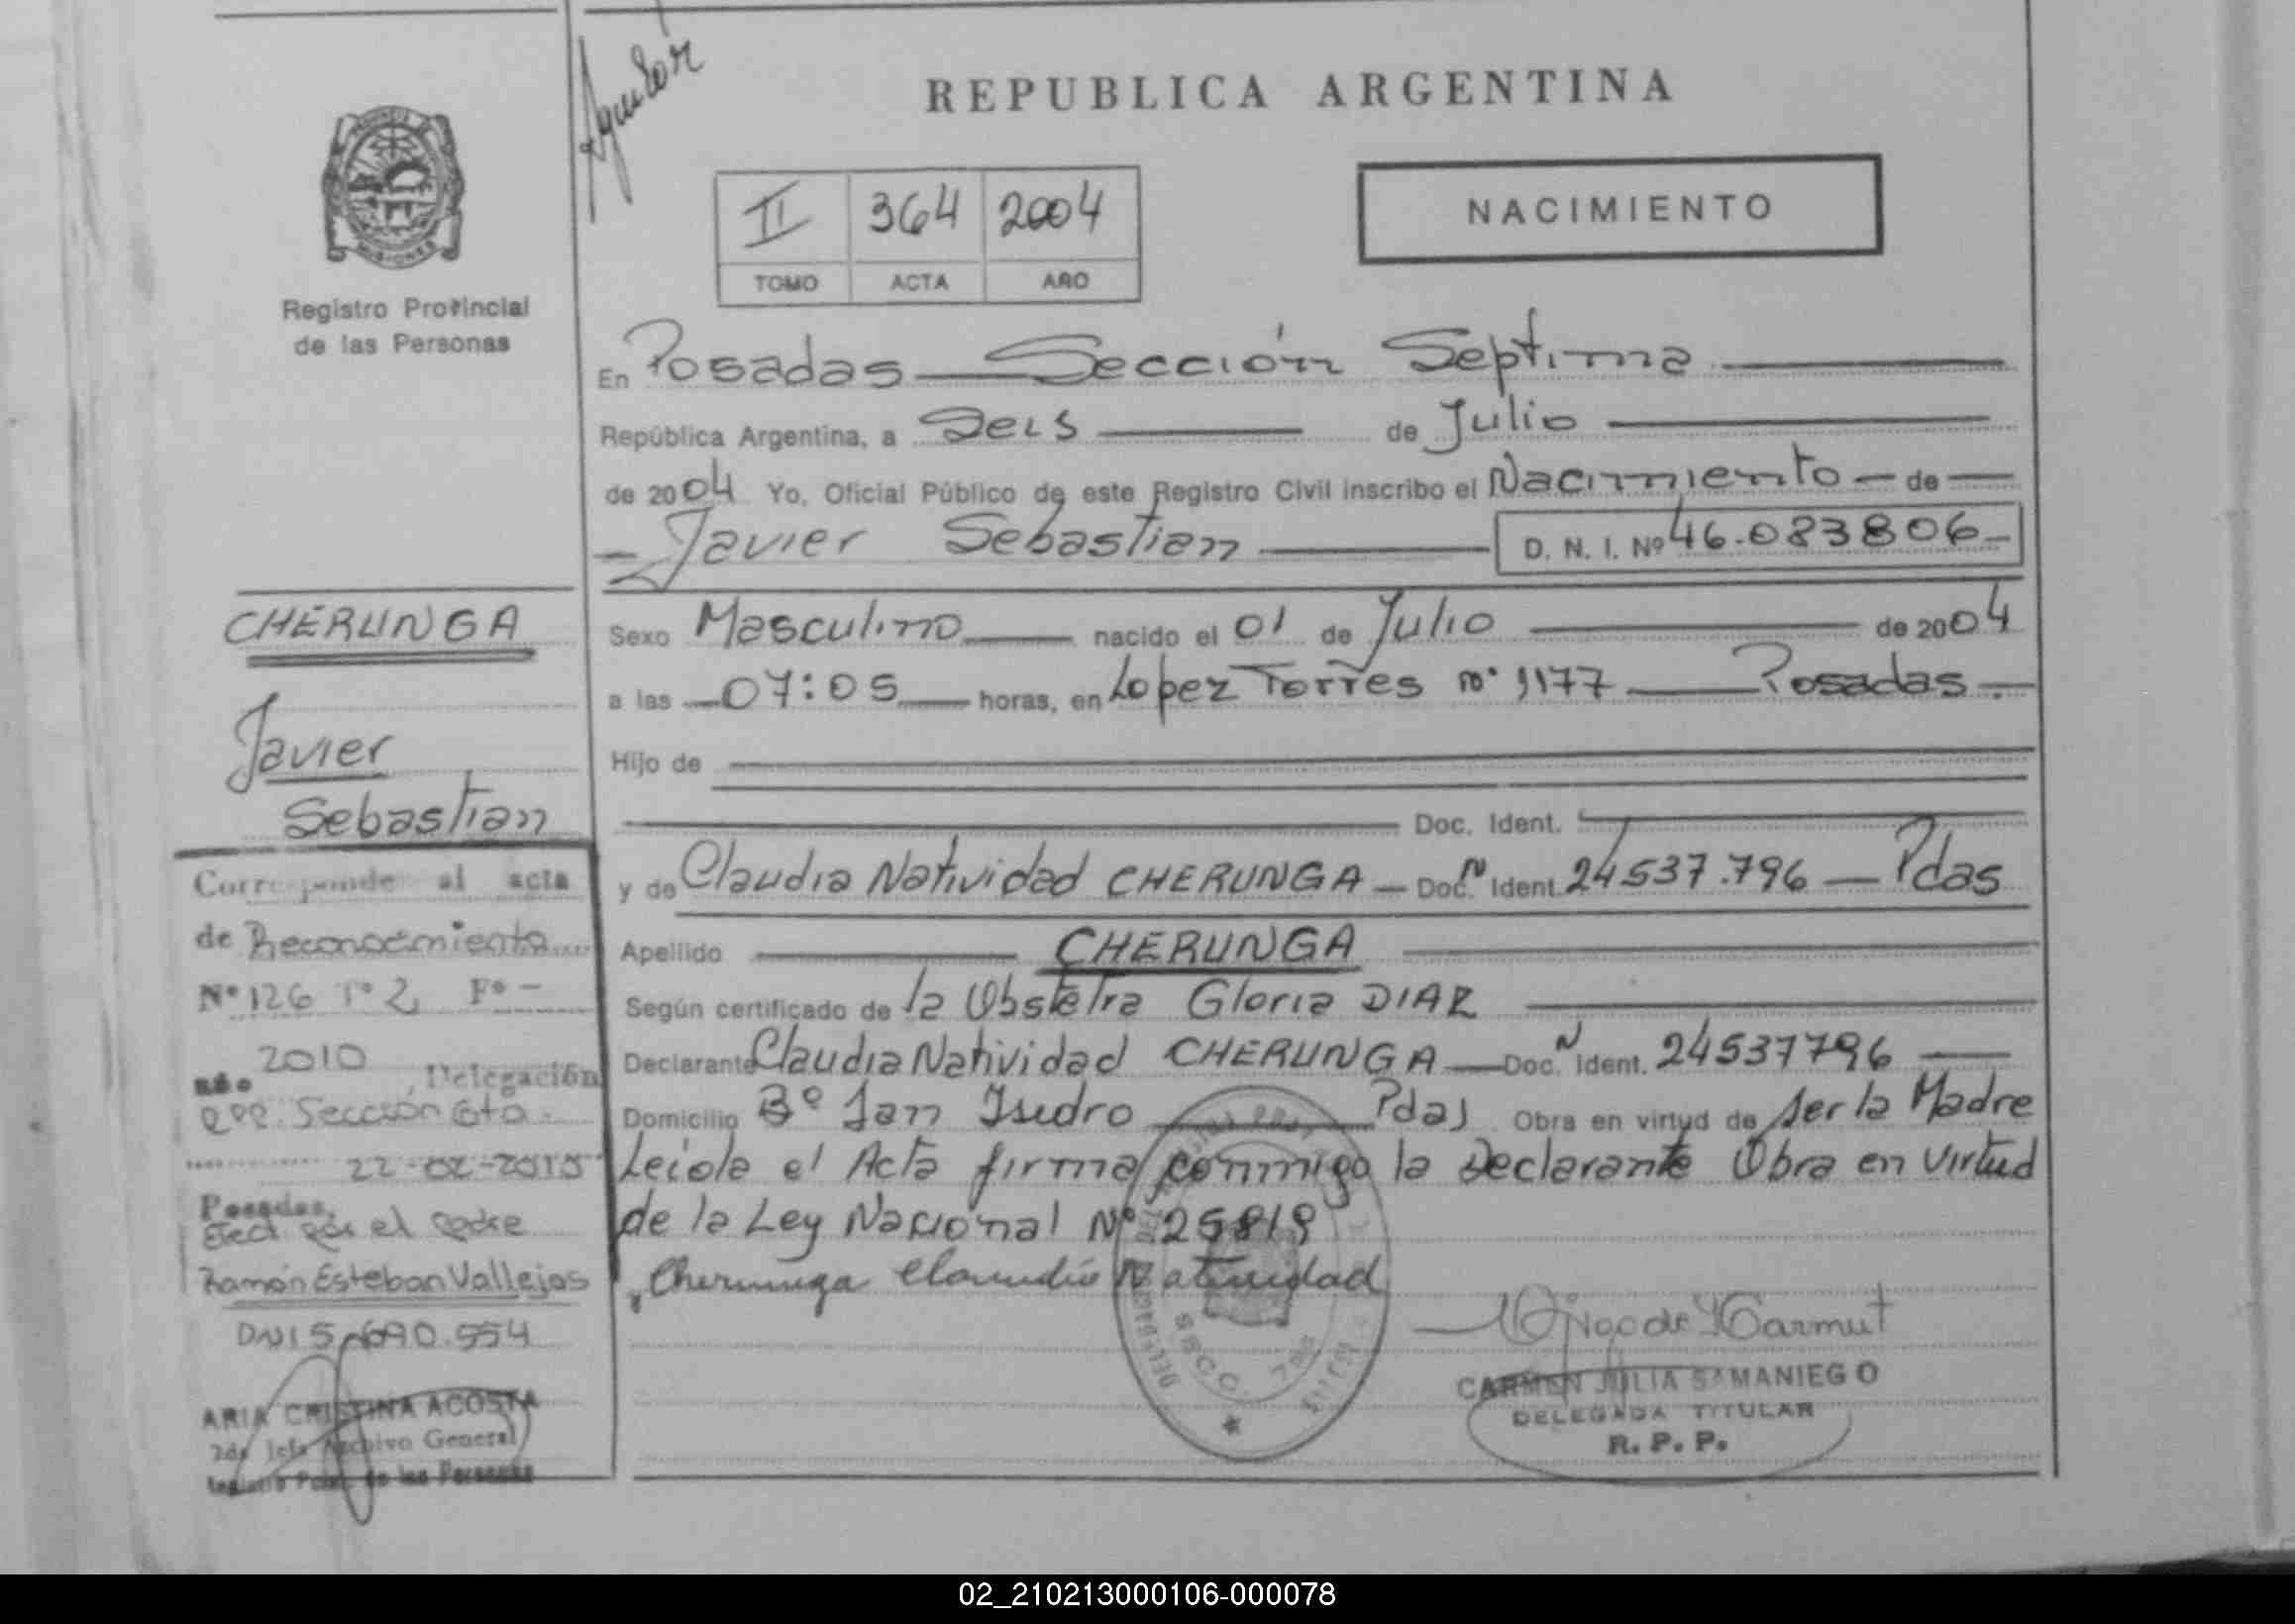 Aguilar
REPUBLICA ARGENTINA
NACIMIENTO
II 364 2004
TOMO ACTA AÑO
MISIONES
Registro Provincial
de las Personas
En Posadas Sección Septima
República Argentina, a Seis de Julio
de 2004 Yo, Oficial Público de este Registro Civil inscribo el Nacimiento de
Javier Sebastian D. N. I. Nº 46.083806
Sexo Masculino nacido el 01 de Julio de 2004
a las 07:05 horas, en Lopez Torres nº 1177 Posadas.
Hijo de
Doc. Ident.
y de Claudia Natividad CHERUNGA Doc. N Ident. 24537.796 Pdas
Apellido CHERUNGA
Según certificado de la Obstetra Gloria DIAZ
Declarante Claudia Natividad CHERUNGA Doc. N Ident. 24537796
Domicilio Bº San Isidro Pdas Obra en virtud de ser la Madre
Leida el Acta firma conmigo la Declarante Obra en Virtud
de la Ley Nacional Nº 25819
Cherunga Claudia Natividad
CARMEN JULIA SAMANIEGO
DELEGADA TITULAR
R. P. P.
CHERUNGA
Javier
Sebastian
Corresponde al acta
de Reconocimiento
Nº 126 Tº 2 Fº -
Año 2010, Delegación
RPP. Sección 6ta.
22-02-2010
Posadas,
Efect por el padre
Ramón Esteban Vallejos
DNI 5.690.554
ARIA CRISTINA ACOSTA
2da Jefa Archivo General
de las Personas
02_210213000106-000078